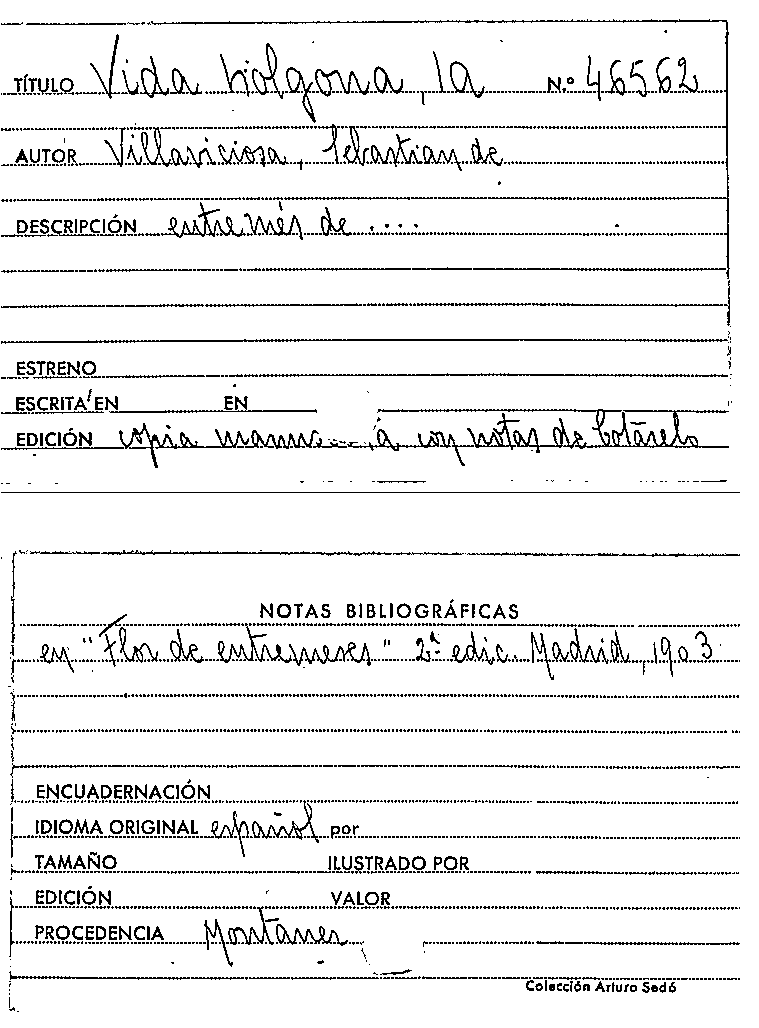 TÍTULO Vida holgona, la N.º 46562
AUTOR Villaviciosa, Sebastian de
DESCRIPCIÓN entremés de ....
ESTRENO
ESCRITA EN EN
EDICIÓN copia con notas de Cotarelo
NOTAS BIBLIOGRÁFICAS
en "Flor de entremeses" 2ª edic. Madrid, 1903
ENCUADERNACIÓN
IDIOMA ORIGINAL español por
TAMAÑO ILUSTRADO POR
EDICIÓN VALOR
PROCEDENCIA Montaner
Colección Arturo Sedó